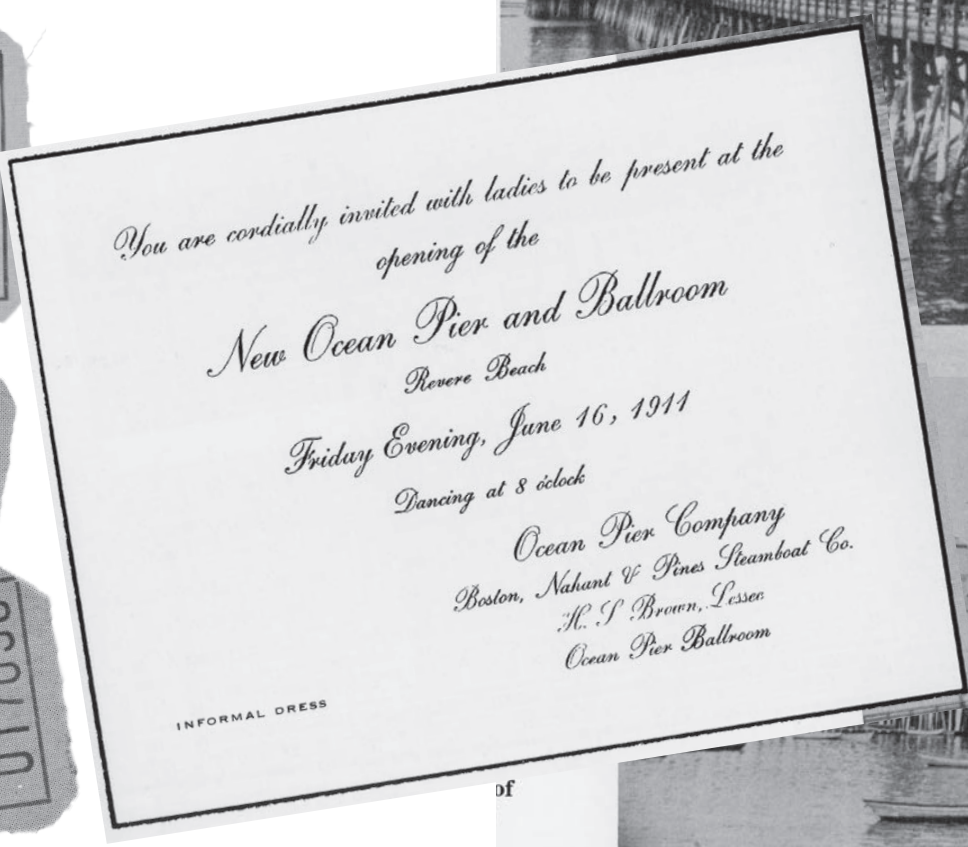 You are cordially invited with ladies to be present at the
opening of the
New Ocean Pier and Ballroom
Revere Beach
Friday Evening, June 16, 1911
Dancing at 8 o'clock
Ocean Pier Company
Boston, Nahant & Pines Steamboat Co.
H. S Brown, Lessee
Ocean Pier Ballroom
INFORMAL DRESS
of